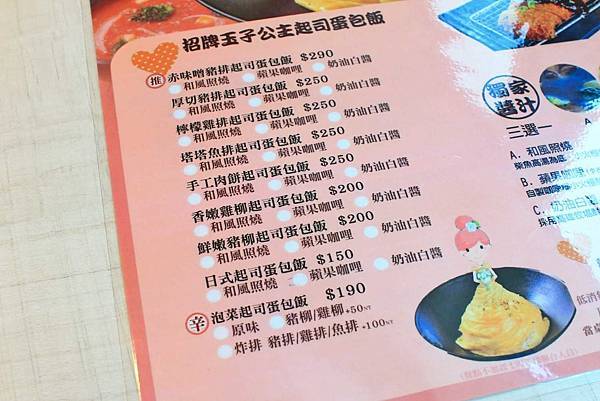 招牌玉子公主起司蛋包飯
推 赤味噌豬排起司蛋包飯 $290
和風照燒 蘋果咖哩 奶油白醬
厚切豬排起司蛋包飯 $250
和風照燒 蘋果咖哩 奶油白醬
檸檬雞排起司蛋包飯 $250
和風照燒 蘋果咖哩 奶油白醬
塔塔魚排起司蛋包飯 $250
和風照燒 蘋果咖哩 奶油白醬
手工肉餅起司蛋包飯 $250
和風照燒 蘋果咖哩 奶油白醬
香嫩雞柳起司蛋包飯 $200
和風照燒 蘋果咖哩 奶油白醬
鮮嫩豬柳起司蛋包飯 $200
和風照燒 蘋果咖哩 奶油白醬
日式起司蛋包飯 $150
和風照燒 蘋果咖哩 奶油白醬
辛 泡菜起司蛋包飯 $190
原味 豬柳/雞柳+50NT
炸排 豬排/雞排/魚排 +100NT
獨家醬汁
三選一
A. 和風照燒
柴魚高湯為底
B. 蘋果咖哩
自製咖哩
C. 奶油白
低消
當桌